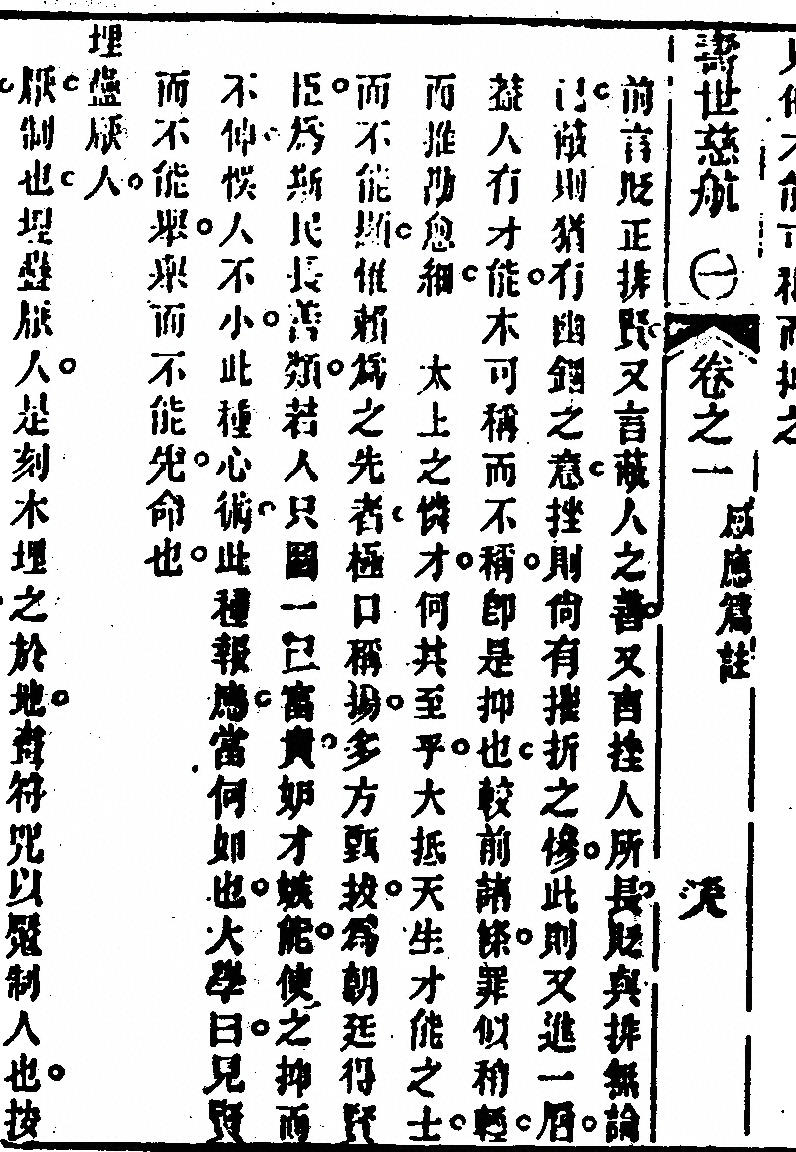 壽世慈航㊀卷之一 感應篇註
前言貶正排賢又言蔽人之善又言挫人所長貶與排無論
已蔽則猶有幽錮之意挫則尙有摧折之慘此則又進一層
葢人有才能木可稱而不稱卽是抑也較前諸條罪似稍輕
而推勘愈細 太上之憐才何其至乎大抵天生才能之士
而不能顯惟賴爲之先者極口稱揚多方甄拔爲朝廷得賢
臣爲斯民長善類若人只圖一己富貴妒才嫉能使之抑而
不伸悞人不小此種心術此種報應當何如也大學曰見賢
而不能舉舉而不能先命也
埋蠱厭人
厭制也埋蠱厭人是刻木埋之於地書符咒以魘制人也按